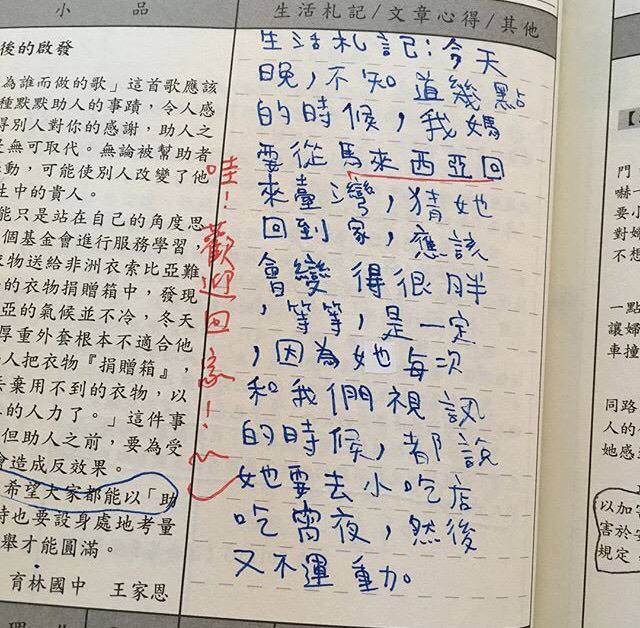 小品
生活札記/文章心得/其他
後的啟發
為誰而做的歌」這首歌應該
種默默助人的事蹟，令人感
得別人對你的感謝，助人之
是無可取代。無論被幫助者
動，可能使別人改變了他
生中的貴人。
能只是站在自己的角度思
個基金會進行服務學習，
衣物送給非洲衣索比亞難
的衣物捐贈箱中，發現
亞的氣候並不冷，冬天
厚重外套根本不適合他
人把衣物『捐贈箱』，
丟棄用不到的衣物，以
的人力了。」這件事
但助人之前，要為受
會造成反效果。
希望大家都能以「助
時也要設身處地考量
舉才能圓滿。
育林國中 王家恩
生活札記：今天
晚，不知道幾點
的時候，我媽
要從馬來西亞回
來臺灣，猜她
回到家，應該
會變得很胖
，等等，是一定
，因為她每次
和我們視訊
的時候，都說
她要去小吃店
吃宵夜，然後
又不運動。
哇！歡迎回家！
【
門
嚇
要
對婦
不想
一點
讓婦
車撞
同路
人的
她感
以加害
害於
規定